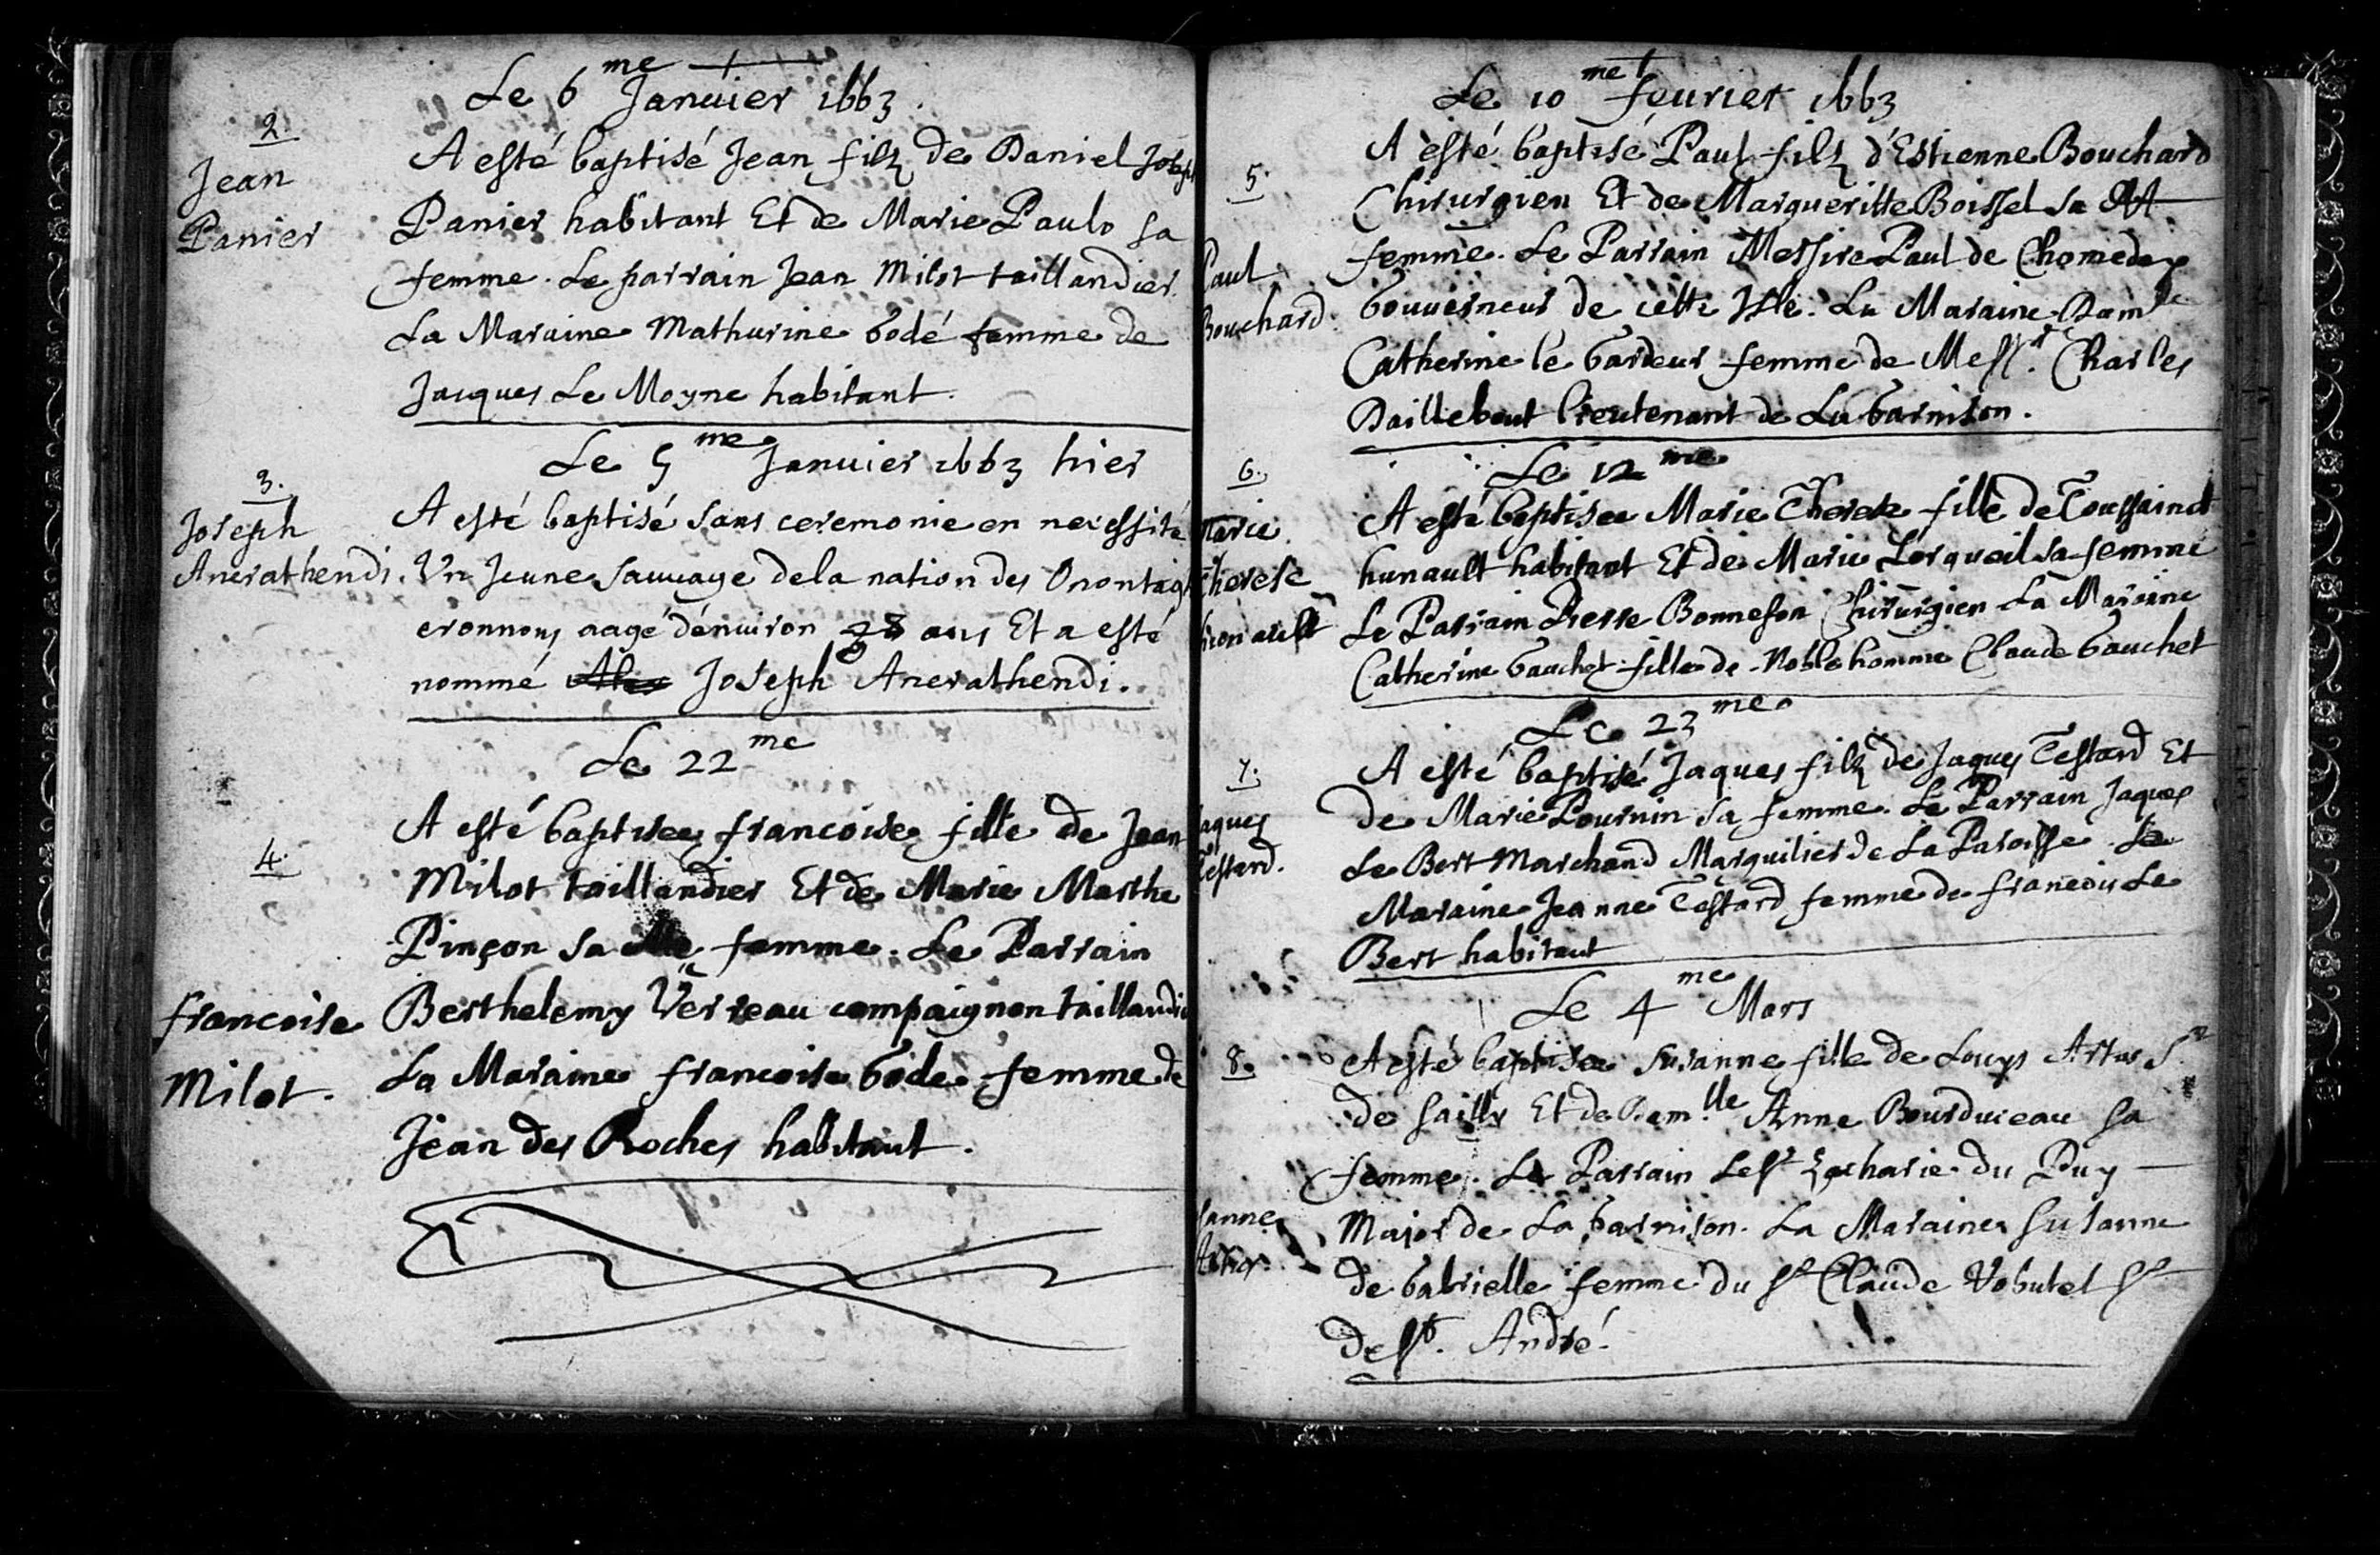 Le 6me Januier 1663.
2.
Jean
Panier
A esté baptisé Jean filz de Daniel Joseph
Panier habitant Et de Marie Paulo sa
femme. Le parrain Jean Milot taillandier.
La Maraine Mathurine Godé femme de
Jacques Le Moyne habitant.
Le 5me Januier 1663 hier
3.
Joseph
Anerathendi.
A esté baptisé sans ceremonie en necessité
Vn Jeune Sauuage de la nation des Onontag
eronnons aagé d'enuiron 28 ans Et a esté
nommé Joseph Anerathendi.
Le 22me
4.
francoise
Milot.
A esté baptisee francoise fille de Jean
Milot taillandier Et de Marie Marthe
Pinçon sa femme. Le Parrain
Berthelemy Verreau compaignon taillandie
La Maraine francoise Godé femme de
Jean des Roches habitant.
Le 10me feurier 1663
5.
Paul
Bouchard.
A esté baptisé Paul filz d'Estienne Bouchard
Chirurgien Et de Margueritte Boissel sa
femme. Le Parrain Messire Paul de Chomedey
Gouuerneur de cette Isle. La Maraine Damlle
Catherine le Gardeur femme de Messre. Charles
Daillebout lieutenant de La Garnison.
Le 12me
6.
Marie
Therese
hunault
A esté baptisee Marie Therese fille de Toussainct
hunault habitant Et de Marie Lorgueil sa femme
Le Parrain Pierre Bonnefon Chirurgien La Maraine
Catherine Gauchet fille de Noble homme Claude Gauchet
Le 23me
7.
Jaques
Testard.
A esté baptisé Jaques filz de Jaques Testard Et
de Marie Pournin sa femme. Le Parrain Jaques
Le Bert Marchand Marguilier de La Paroisse. La
Maraine Jeanne Testard femme de francois Le
Bert habitant
Le 4me Mars
8.
sanne
Artus.
A esté baptisee Susanne fille de Louys Artus Sr
de Sailly Et de Dam.lle Anne Bourduceau sa
femme. Le Parrain Le Sr Zacharie du Puy
Major de La Garnison. La Maraine Susanne
de Gabrielle femme du Sr Claude Robutel Sr
de St. André.